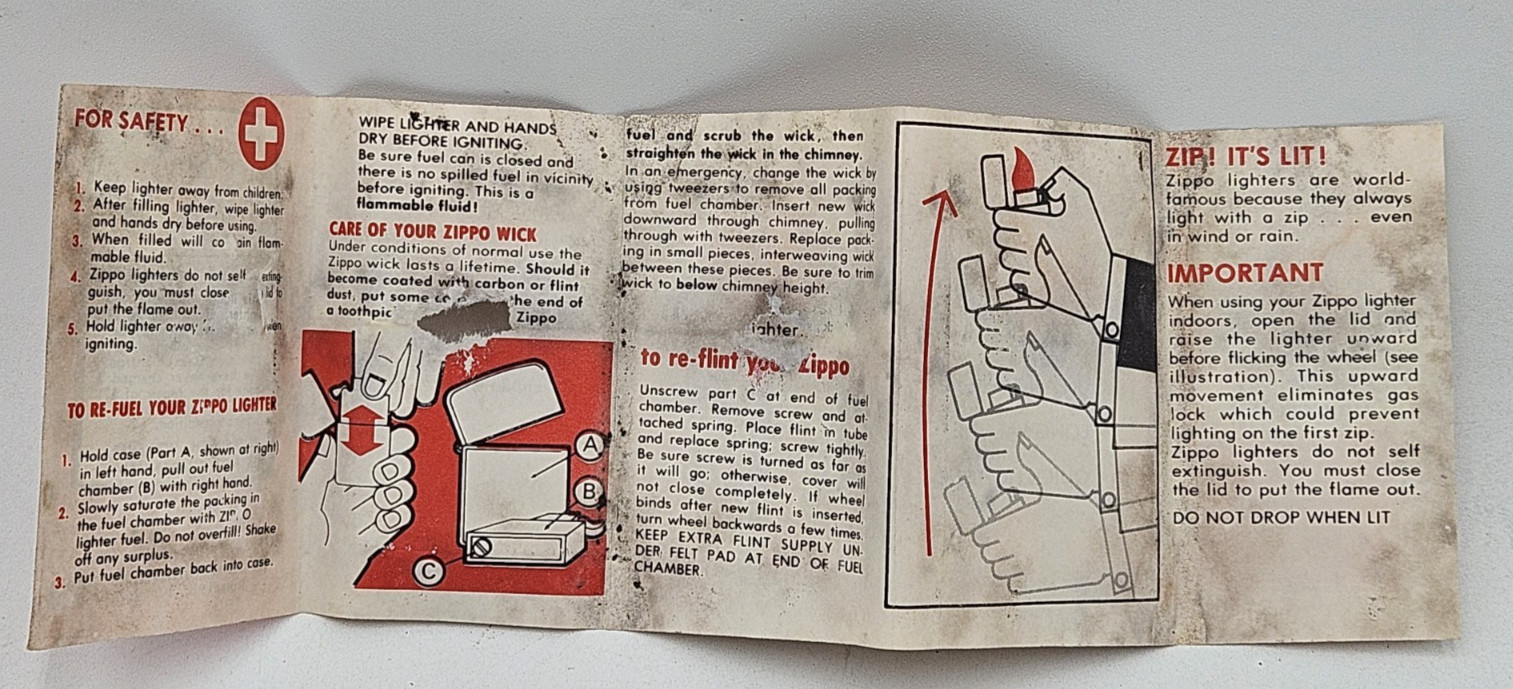 FOR SAFETY . . .
1. Keep lighter away from children.
2. After filling lighter, wipe lighter
and hands dry before using.
3. When filled will flam-
mable fluid.
4. Zippo lighters do not self
guish, you must close
put the flame out.
5. Hold lighter away
igniting.
TO RE-FUEL YOUR ZIPPO LIGHTER
1. Hold case (Part A, shown at right)
in left hand, pull out fuel
chamber (B) with right hand.
2. Slowly saturate the packing in
the fuel chamber with
lighter fuel. Do not overfill! Shake
off any surplus.
3. Put fuel chamber back into case.
WIPE LIGHTER AND HANDS
DRY BEFORE IGNITING.
Be sure fuel can is closed and
there is no spilled fuel in vicinity
before igniting. This is a
flammable fluid!
CARE OF YOUR ZIPPO WICK
Under conditions of normal use the
Zippo wick lasts a lifetime. Should it
become coated with carbon or flint
dust, put some the end of
a Zippo
A
B
C
fuel and scrub the wick, then
straighten the wick in the chimney.
In an emergency, change the wick by
using tweezers to remove all packing
from fuel chamber. Insert new wick
downward through chimney, pulling
through with tweezers. Replace pack-
ing in small pieces, interweaving wick
between these pieces. Be sure to trim
wick to below chimney height.
to re-flint your Zippo
Unscrew part C at end of fuel
chamber. Remove screw and at-
tached spring. Place flint in tube
and replace spring; screw tightly.
Be sure screw is turned as far as
it will go; otherwise, cover will
not close completely. If wheel
binds after new flint is inserted,
turn wheel backwards a few times.
KEEP EXTRA FLINT SUPPLY UN-
DER FELT PAD AT END OF FUEL
CHAMBER.
ZIP! IT'S LIT!
Zippo lighters are world-
famous because they always
light with a zip . . . even
in wind or rain.
IMPORTANT
When using your Zippo lighter
indoors, open the lid and
raise the lighter upward
before flicking the wheel (see
illustration). This upward
movement eliminates gas
lock which could prevent
lighting on the first zip.
Zippo lighters do not self
extinguish. You must close
the lid to put the flame out.
DO NOT DROP WHEN LIT